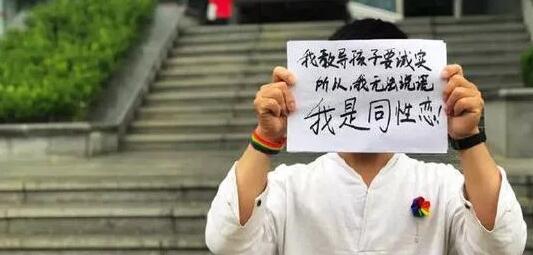 我教导孩子要诚实
所以,我无法说谎
我是同性恋!